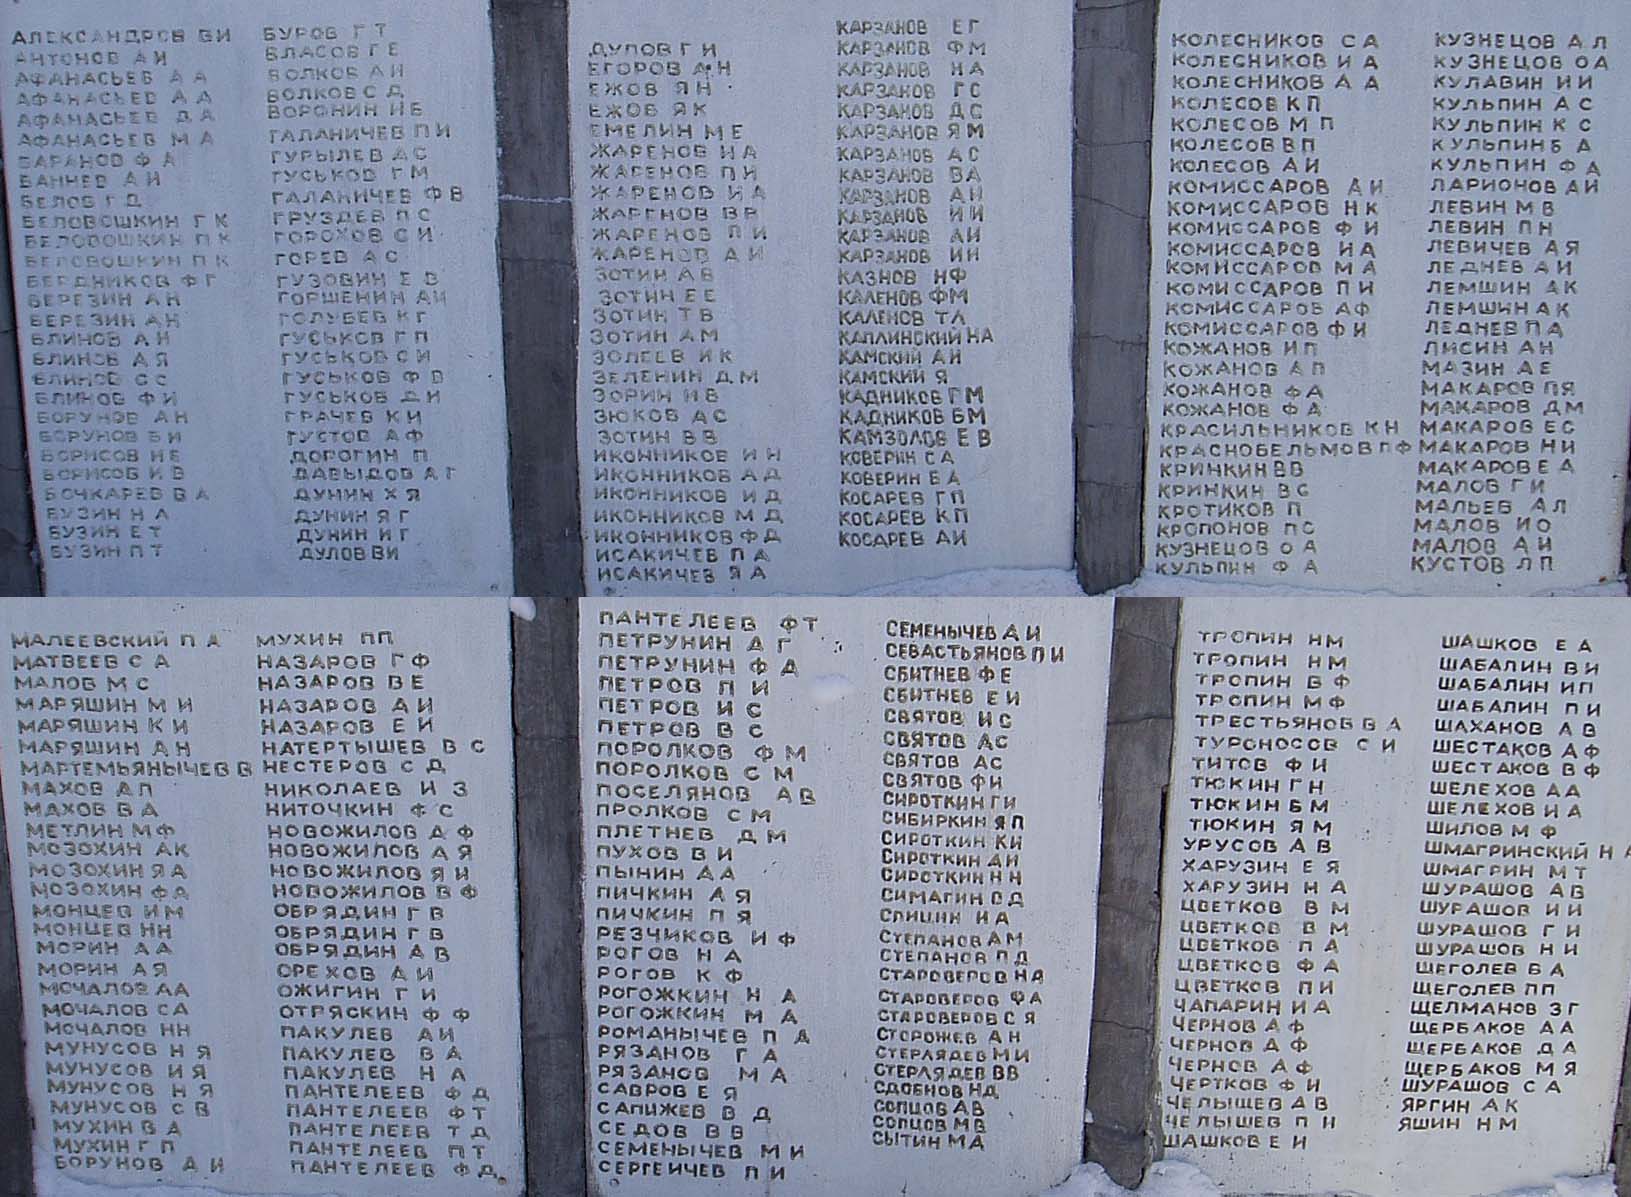 АЛЕКСАНДРОВ В И
АНТОНОВ А И
АФАНАСЬЕВ А А
АФАНАСЬЕВ А А
АФАНАСЬЕВ Д А
АФАНАСЬЕВ М А
БАРАНОВ Ф А
БАННЕВ А И
БЕЛОВ Г Д
БЕЛОВОШКИН Г К
БЕЛОВОШКИН П К
БЕЛОВОШКИН П К
БЕРДНИКОВ Ф Г
БЕРЕЗИН А Н
БЕРЕЗИН А Н
БЛИНОВ А И
БЛИНОВ А Я
БЛИНОВ С С
БЛИНОВ Ф И
БОРУНОВ А Н
БОРУНОВ Б И
БОРИСОВ Н Е
БОРИСОВ И В
БОЧКАРЕВ В А
БУЗИН Н А
БУЗИН Е Т
БУЗИН П Т
БУРОВ Г Т
ВЛАСОВ Г Е
ВОЛКОВ А И
ВОЛКОВ С Д
ВОРОНИН И Е
ГАЛАНИЧЕВ П И
ГУРЫЛЕВ А С
ГУСЬКОВ Г М
ГАЛАНИЧЕВ Ф В
ГРУЗДЕВ П С
ГОРОХОВ С И
ГОРЕВ А С
ГУЗОВИН Е В
ГОРШЕНИН А И
ГОЛУБЕВ К Г
ГУСЬКОВ Г П
ГУСЬКОВ С И
ГУСЬКОВ Ф В
ГУСЬКОВ Д И
ГРАЧЕВ К И
ГУСТОВ А Ф
ДОРОГИН П
ДАВЫДОВ А Г
ДУНИН Х Я
ДУНИН Я Г
ДУНИН И Г
ДУЛОВ В И
ДУЛОВ Г И
ЕГОРОВ А Н
ЕЖОВ Я Н
ЕЖОВ Я К
ЕМЕЛИН М Е
ЖАРЕНОВ Н А
ЖАРЕНОВ П И
ЖАРЕНОВ И А
ЖАРЕНОВ В В
ЖАРЕНОВ П И
ЖАРЕНОВ А И
ЗОТИН А В
ЗОТИН Е Е
ЗОТИН Т В
ЗОТИН А М
ЗОЛЕЕВ И К
ЗЕЛЕНИН Д М
ЗОРИН И В
ЗЮКОВ А С
ЗОТИН В В
ИКОННИКОВ И Н
ИКОННИКОВ А Д
ИКОННИКОВ И Д
ИКОННИКОВ М Д
ИКОННИКОВ Ф Д
ИСАКИЧЕВ П А
ИСАКИЧЕВ Я А
КАРЗАНОВ Е Г
КАРЗАНОВ Ф М
КАРЗАНОВ Н А
КАРЗАНОВ Г С
КАРЗАНОВ Д С
КАРЗАНОВ Я М
КАРЗАНОВ А С
КАРЗАНОВ В А
КАРЗАНОВ А И
КАРЗАНОВ И И
КАРЗАНОВ А И
КАРЗАНОВ И И
КАЗНОВ Н Ф
КАЛЕНОВ Ф М
КАЛЕНОВ Т Л
КАПЛИНСКИЙ Н А
КАМСКИЙ А И
КАМСКИЙ Я
КАДНИКОВ Г М
КАДНИКОВ Б М
КАМЗОЛОВ Е В
КОВЕРИН С А
КОВЕРИН Е А
КОСАРЕВ Г П
КОСАРЕВ К П
КОСАРЕВ А И
КОЛЕСНИКОВ С А
КОЛЕСНИКОВ И А
КОЛЕСНИКОВ А А
КОЛЕСОВ К П
КОЛЕСОВ М П
КОЛЕСОВ В П
КОЛЕСОВ А И
КОМИССАРОВ А И
КОМИССАРОВ Н К
КОМИССАРОВ Ф И
КОМИССАРОВ И А
КОМИССАРОВ М А
КОМИССАРОВ П И
КОМИССАРОВ А Ф
КОМИССАРОВ Ф И
КОЖАНОВ И П
КОЖАНОВ А П
КОЖАНОВ Ф А
КОЖАНОВ Ф А
КРАСИЛЬНИКОВ К Н
КРАСНОБЕЛЬМОВ П Ф
КРИНКИН В В
КРИНКИН В С
КРОТИКОВ П
КРОПОНОВ П С
КУЗНЕЦОВ О А
КУЛЬПИН Ф А
КУЗНЕЦОВ А Л
КУЗНЕЦОВ О А
КУЛАВИН И И
КУЛЬПИН А С
КУЛЬПИН К С
КУЛЬПИН Б А
КУЛЬПИН Ф А
ЛАРИОНОВ А И
ЛЕВИН М В
ЛЕВИН П Н
ЛЕВИЧЕВ А Я
ЛЕДНЕВ А И
ЛЕМШИН А К
ЛЕМШИН А К
ЛЕДНЕВ П А
ЛИСИН А Н
МАЗИН А Е
МАКАРОВ П Я
МАКАРОВ Д М
МАКАРОВ Е С
МАКАРОВ Н И
МАКАРОВ Е А
МАЛОВ Г И
МАЛЬЕВ А Л
МАЛОВ И О
МАЛОВ А И
КУСТОВ Л П
МАЛЕЕВСКИЙ П А
МАТВЕЕВ С А
МАЛОВ М С
МАРЯШИН М И
МАРЯШИН К И
МАРЯШИН А Н
МАРТЕМЬЯНЫЧЕВ В
МАХОВ А П
МАХОВ В А
МЕТЛИН М Ф
МОЗОХИН А К
МОЗОХИН Я А
МОЗОХИН Ф А
МОНЦЕВ И М
МОНЦЕВ Н Н
МОРИН А А
МОРИН А Я
МОЧАЛОВ А А
МОЧАЛОВ С А
МОЧАЛОВ Н Н
МУНУСОВ Н Я
МУНУСОВ И Я
МУНУСОВ Н Я
МУНУСОВ С В
МУХИН В А
МУХИН Г П
БОРУНОВ А И
МУХИН П П
НАЗАРОВ Г Ф
НАЗАРОВ В Е
НАЗАРОВ А И
НАЗАРОВ Е И
НАТЕРТЫШЕВ В С
НЕСТЕРОВ С Д
НИКОЛАЕВ И З
НИТОЧКИН Ф С
НОВОЖИЛОВ А Ф
НОВОЖИЛОВ А Я
НОВОЖИЛОВ Я И
НОВОЖИЛОВ В Ф
ОБРЯДИН Г В
ОБРЯДИН Г В
ОБРЯДИН А В
ОРЕХОВ А И
ОЖИГИН Г И
ОТРЯСКИН Ф Ф
ПАКУЛЕВ А И
ПАКУЛЕВ В А
ПАКУЛЕВ Н А
ПАНТЕЛЕЕВ Ф Д
ПАНТЕЛЕЕВ Ф Т
ПАНТЕЛЕЕВ Т Д
ПАНТЕЛЕЕВ П Т
ПАНТЕЛЕЕВ Ф Д
ПАНТЕЛЕЕВ Ф Т
ПЕТРУНИН А Г
ПЕТРУНИН Ф Д
ПЕТРОВ П И
ПЕТРОВ И С
ПЕТРОВ В С
ПОРОЛКОВ Ф М
ПОРОЛКОВ С М
ПОСЕЛЯНОВ А В
ПРОЛКОВ С М
ПЛЕТНЕВ Д М
ПУХОВ В И
ПЫНИН А А
ПИЧКИН А Я
ПИЧКИН П Я
РЕЗЧИКОВ И Ф
РОГОВ Н А
РОГОВ К Ф
РОГОЖКИН Н А
РОГОЖКИН М А
РОМАНЫЧЕВ П А
РЯЗАНОВ Г А
РЯЗАНОВ М А
САВРОВ Е Я
САПИЖЕВ В Д
СЕДОВ В В
СЕМЕНЫЧЕВ М И
СЕРГЕИЧЕВ П И
СЕМЕНЫЧЕВ А И
СЕВАСТЬЯНОВ П И
СБИТНЕВ Ф Е
СБИТНЕВ Е И
СВЯТОВ И С
СВЯТОВ Д С
СВЯТОВ А С
СВЯТОВ Ф И
СИРОТКИН Г И
СИБИРКИН Я П
СИРОТКИН К И
СИРОТКИН А И
СИРОТКИН Н Н
СИМАГИН С Д
СПИЦИН И А
СТЕПАНОВ А М
СТЕПАНОВ П Д
СТАРОВЕРОВ Н А
СТАРОВЕРОВ Ф А
СТАРОВЕРОВ С Я
СТОРОЖЕВ А Н
СТЕРЛЯДЕВ М И
СТЕРЛЯДЕВ В В
СДОБНОВ Н Д
СОПЦОВ А В
СОПЦОВ М В
СЫТИН М А
ТРОПИН Н М
ТРОПИН Н М
ТРОПИН В Ф
ТРОПИН М Ф
ТРЕСТЬЯНОВ В А
ТУРОНОСОВ С И
ТИТОВ Ф И
ТЮКИН Г Н
ТЮКИН Б М
ТЮКИН Я М
УРУСОВ А В
ХАРУЗИН Е Я
ХАРУЗИН Н А
ЦВЕТКОВ В М
ЦВЕТКОВ В М
ЦВЕТКОВ П А
ЦВЕТКОВ Ф А
ЦВЕТКОВ П И
ЧАПАРИН И А
ЧЕРНОВ А Ф
ЧЕРНОВ Д Ф
ЧЕРНОВ А Ф
ЧЕРТКОВ Ф И
ЧЕЛЫШЕВ А В
ЧЕЛЫШЕВ П И
ШАШКОВ Е И
ШАШКОВ Е А
ШАБАЛИН В И
ШАБАЛИН И П
ШАБАЛИН П И
ШАХАНОВ А В
ШЕСТАКОВ А Ф
ШЕСТАКОВ В Ф
ШЕЛЕХОВ А А
ШЕЛЕХОВ И А
ШИЛОВ М Ф
ШМАГРИНСКИЙ Н А
ШМАГРИН М Т
ШУРАШОВ А В
ШУРАШОВ И И
ШУРАШОВ Г И
ШУРАШОВ Н И
ЩЕГОЛЕВ Б А
ЩЕГОЛЕВ П П
ЩЕЛМАНОВ З Г
ЩЕРБАКОВ А А
ЩЕРБАКОВ Д А
ЩЕРБАКОВ М Я
ШУРАШОВ С А
ЯРГИН А К
ЯШИН Н М